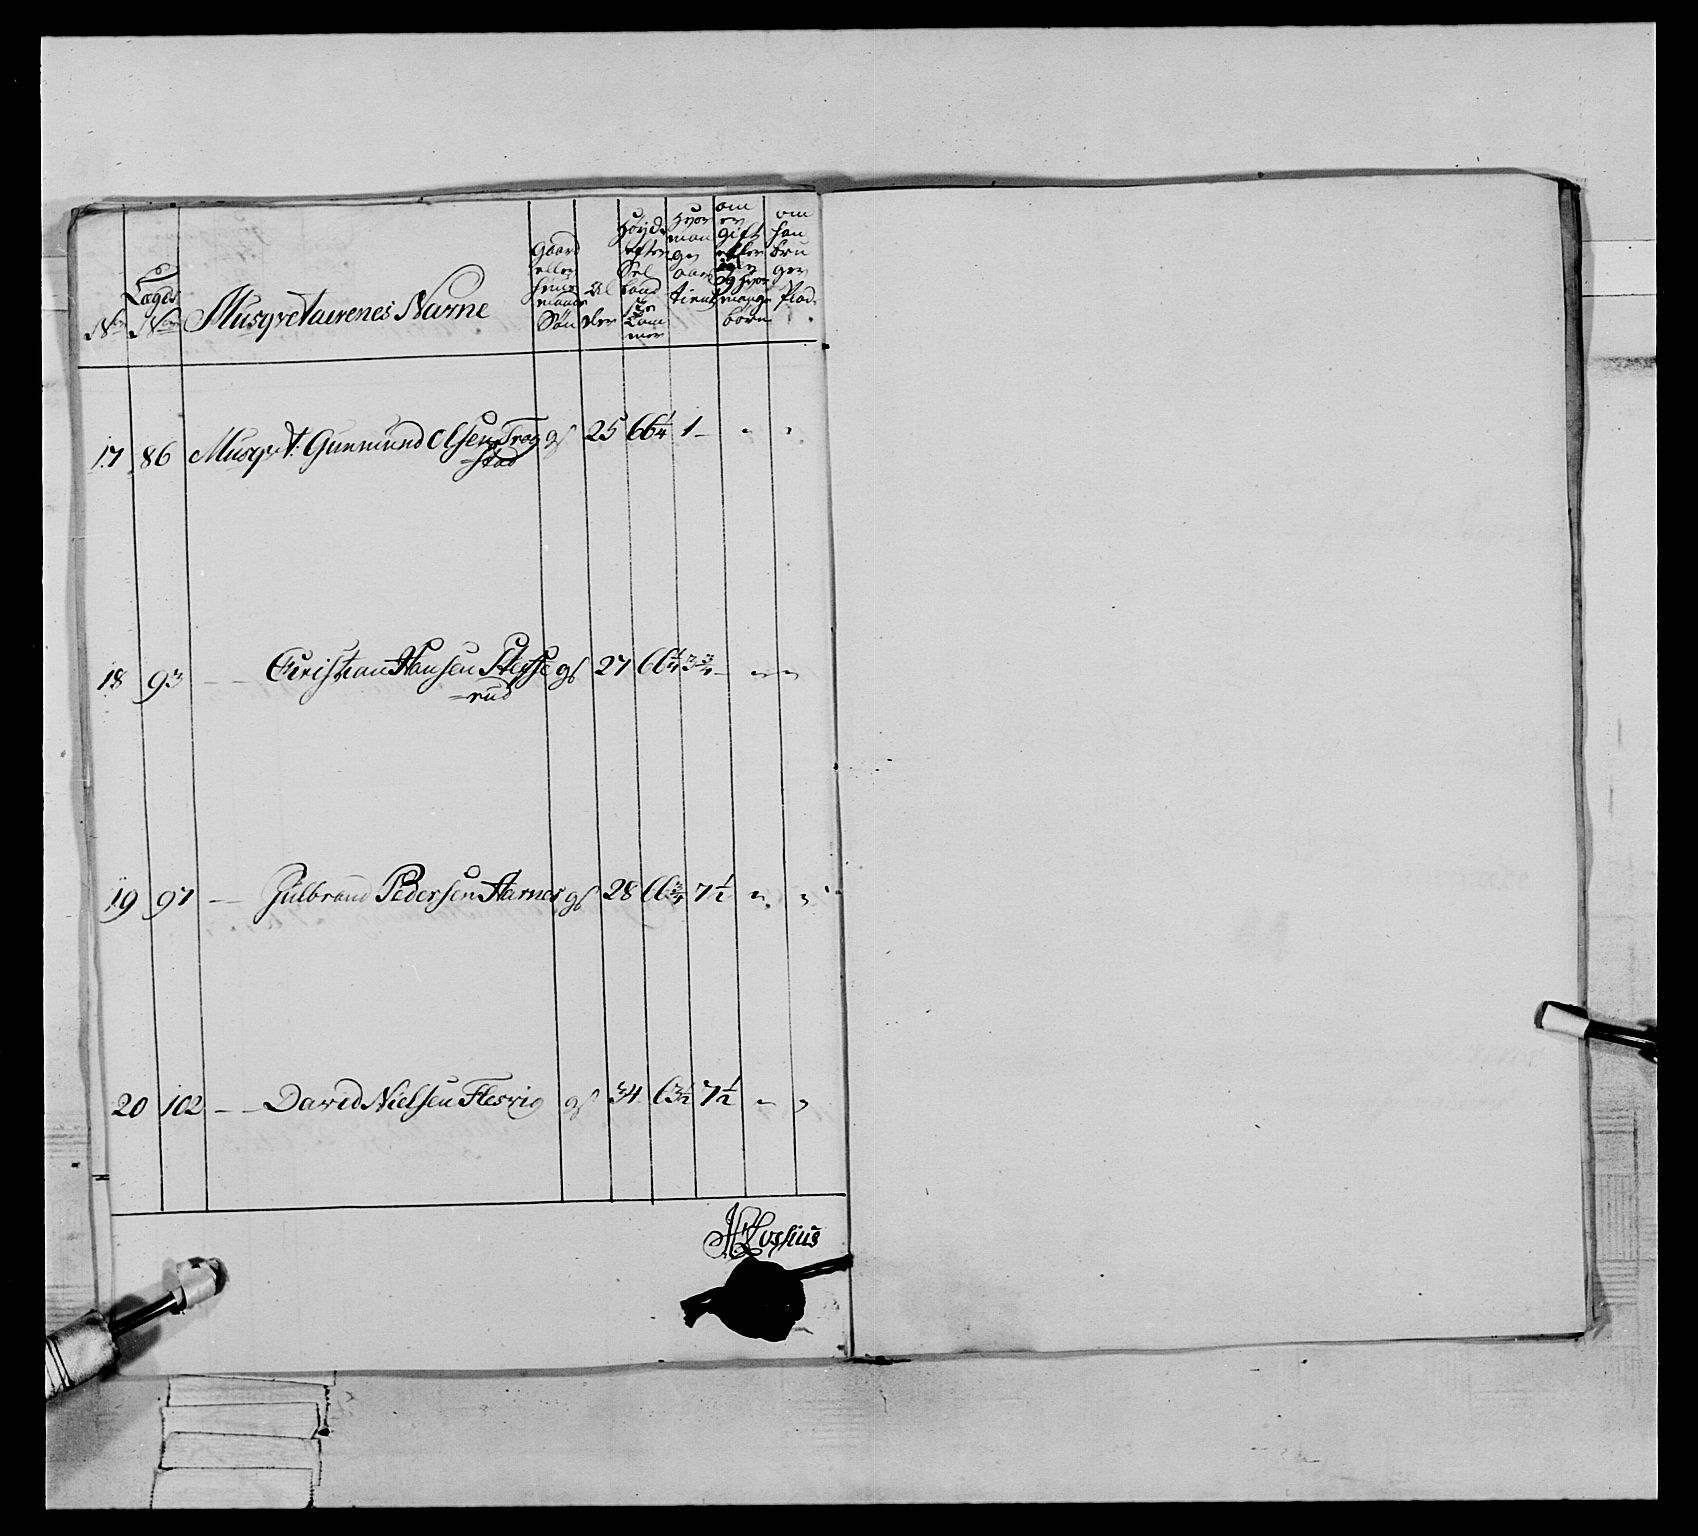 No Lægds No Musqvetairenes Navne Gaard eller Huusmands Søn Alder Høyde efter Sel Baand Tommer Hvor mange aar tient om er gift eller ey og hvor mange børn om han bruger Plads
17 86 Musqvt: Gunmund Olsen Trog gs 25 66 1/4 1 - " "
=stad
18 93 — — Christian Hansen gs 27 66 1/4 3 3/4 - " "
=rud
19 97 — — Gulbrand Pedersen Aarnes gs 28 66 3/4 7 1/2 " "
20 102 — — David Nielsen Flesvig gs 34 63 1/2 7 1/2 " "
Lossius